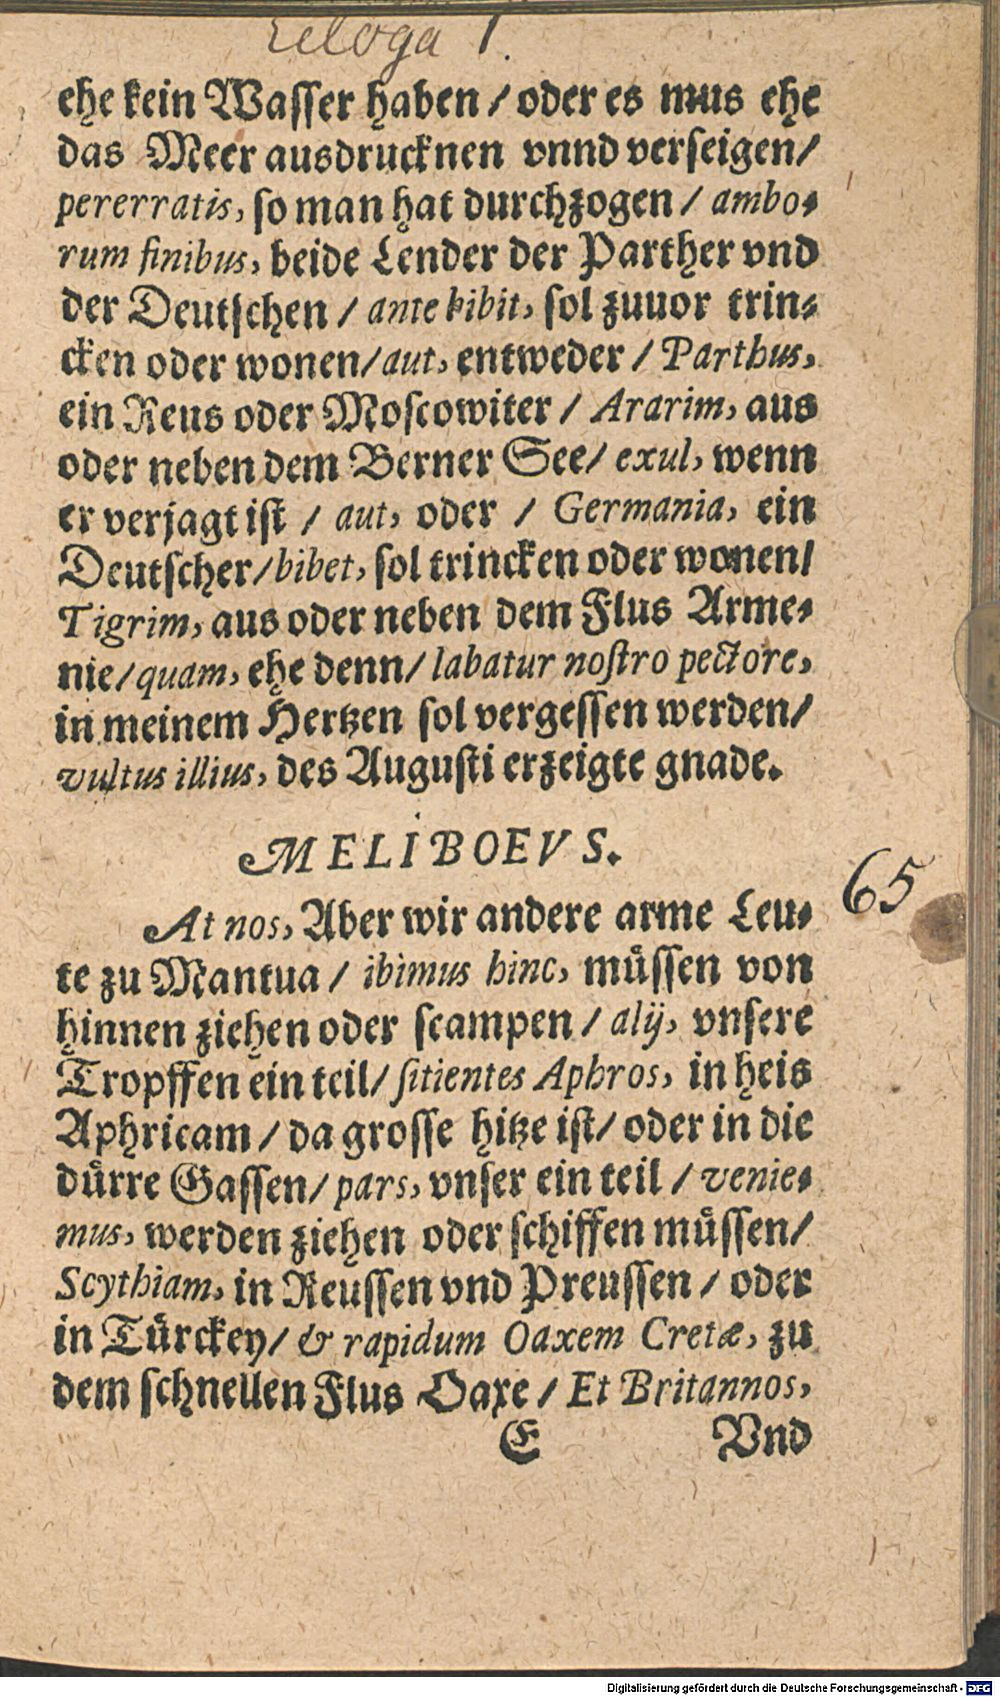 Ecloga 1.
ehe kein Wasser haben / oder es mus ehe
das Meer ausdrucknen vnnd verseigen/
pererratis, so man hat durchzogen / ambo⸗
rum finibus, beide Lender der Parther vnd
der Deutschen / ante bibit, sol zuuor trin⸗
cken oder wonen/ aut, entweder / Parthus,
ein Reus oder Moscowiter / Ararim, aus
oder neben dem Berner See/ exul, wenn
er verjagt ist / aut, oder / Germania, ein
Deutscher/ bibet, sol trincken oder wonen/
Tigrim, aus oder neben dem Flus Arme⸗
nie/ quam, ehe denn/ labatur nostro pectore,
in meinem Hertzen sol vergessen werden/
vultus illius, des Augusti erzeigte gnade.
MELIBOEVS.
65
At nos, Aber wir andere arme Leu⸗
te zu Mantua / ibimus hinc, müssen von
hinnen ziehen oder scampen / alij, vnsere
Tropffen ein teil/ sitientes Aphros, in heis
Aphricam / da grosse hitze ist/ oder in die
dürre Gassen/ pars, vnser ein teil / venie⸗
mus, werden ziehen oder schiffen müssen/
Scythiam, in Reussen vnd Preussen / oder
in Türckey/ & rapidum Oaxem Cretæ, zu
dem schnellen Flus Oaxe / Et Britannos,
E Vnd
Digitalisierung gefördert durch die Deutsche Forschungsgemeinschaft - DFG